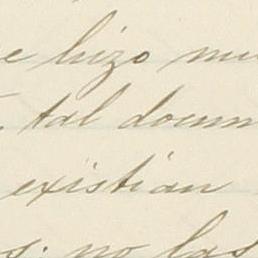 e hizo mu
tal docum
existian
s. no las